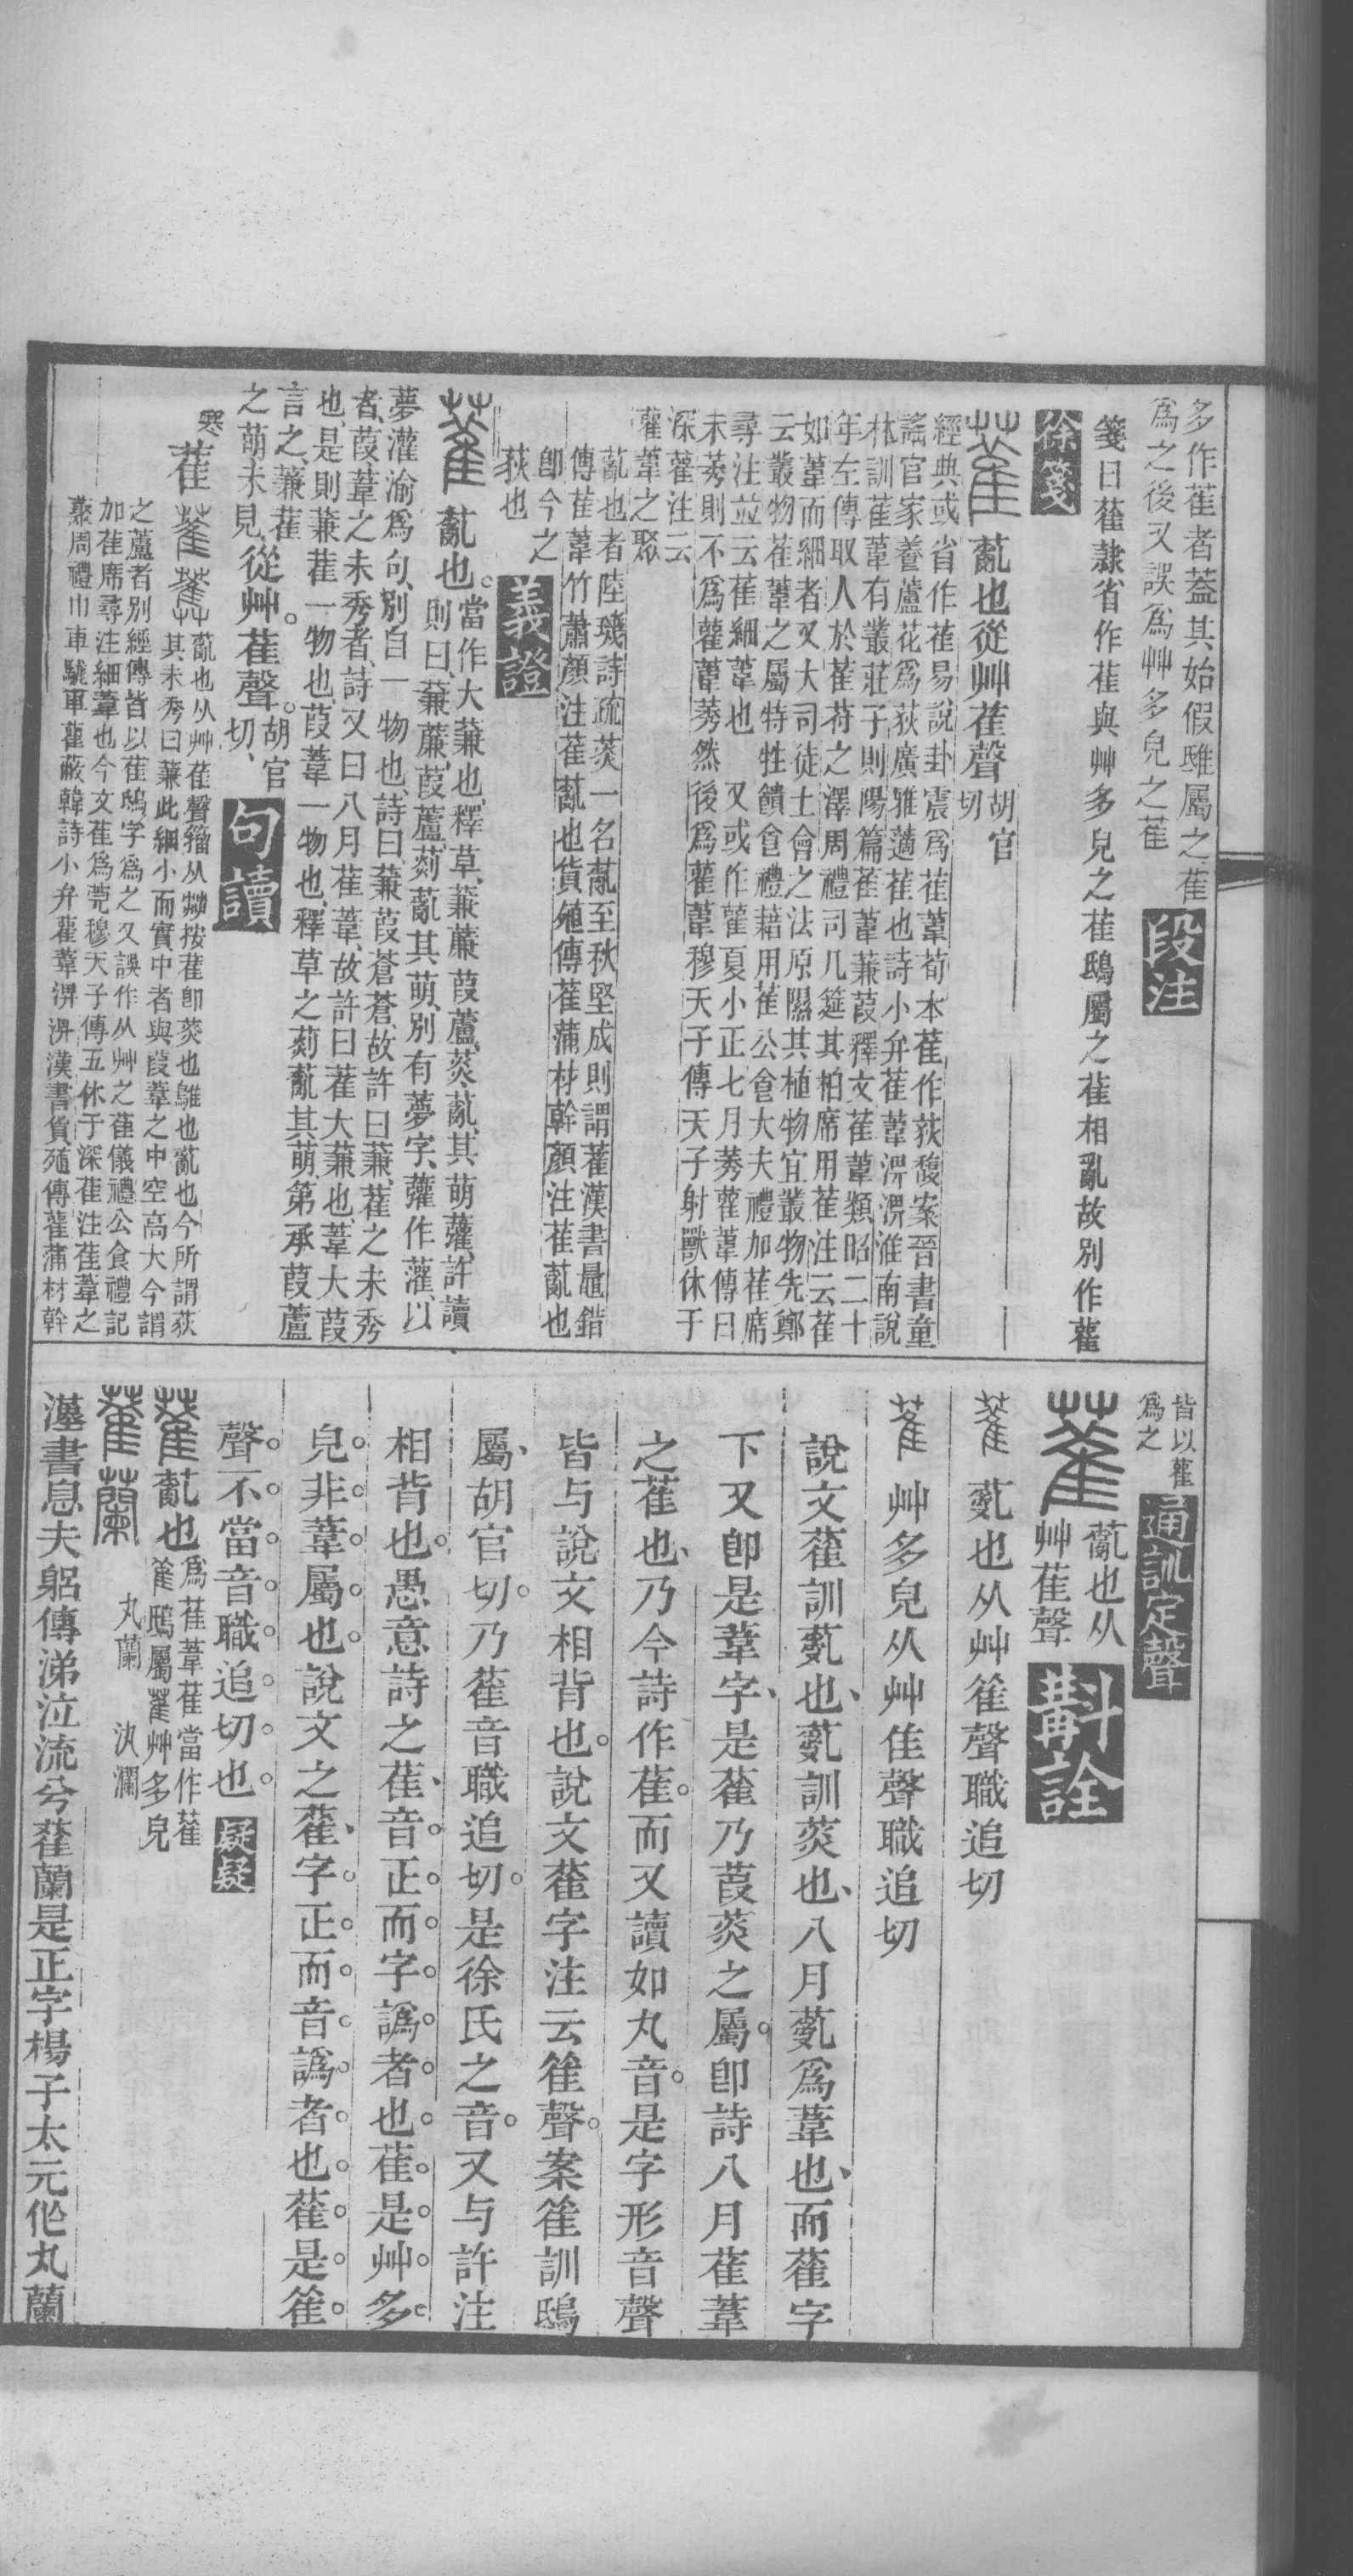 多作萑者葢其始假雖屬之萑
爲之後又誤爲艸多皃之萑
段注
箋曰䕲隸省作萑與艸多皃之萑鴟屬之萑相亂故別作雚
徐箋
薍也從艸萑聲胡官切
經典或省作萑易說卦震爲萑葦荀本萑作荻馥案晉書童
謠官家養蘆花爲荻廣雅薖萑也詩小弁萑葦淠淠淮南說
林訓萑葦有叢莊子則陽篇萑葦蒹葭釋文萑葦類昭二十
年左傳取人於萑苻之澤周禮司几筵其柏席用萑注云萑
如葦而細者又大司徒土會之法原隰其植物宜叢物先鄭
云叢物萑葦之屬特牲饋食禮藉用萑公食大夫禮加萑席
尋注竝云萑細葦也又或作雚夏小正七月莠雚葦傳曰
未莠則不爲雚葦莠然後爲雚葦穆天子傳天子射獸休于
深雚注云
雚葦之聚
薍也者陸璣詩疏菼一名薍至秋堅成則謂萑漢書鼂錯
傳萑葦竹蕭顏注萑薍也貨殖傳萑蒲材幹顏注萑薍也
卽今之
荻也
義證
薍也。當作大蒹也釋草蒹薕葭蘆菼薍其萌虇許讀
則曰蒹薕葭蘆菿薍其萌別有夢字虇作灌以
夢灌渝爲句別自一物也詩曰蒹葭蒼蒼故許曰蒹萑之未秀
者葭葦之未秀者詩又曰八月萑葦故許曰萑大蒹也葦大葭
也是則蒹萑一物也葭葦一物也釋草之菿薍其萌第承葭蘆
言之蒹萑
之萌未見從艸。萑聲。胡官切
句讀
寒
萑 薍也从艸萑聲籀从茻按萑卽菼也鵻也薍也今所謂荻
其未秀曰蒹此細小而實中者與葭葦之中空高大今謂
之蘆者別經傳皆以萑鴟字爲之又誤作从艸之萑儀禮公食禮記
加萑席尋注細葦也今文萑爲莞穆天子傳五休于深萑注萑葦之
藂周禮巾車駹車雚蔽韓詩小弁雚葦淠淠漢書貨殖傳雚蒲材幹
皆以雚
爲之
通訓定聲
薍也从
艸萑聲
斠詮
薍也从艸萑聲職追切
艸多皃从艸隹聲職追切
說文萑訓薍也薍訓菼也八月薍爲葦也而萑字
下又卽是葦字是萑乃葭菼之屬卽詩八月萑葦
之萑也乃今詩作萑而又讀如丸音是字形音聲
皆与說文相背也說文萑字注云萑聲案萑訓鴟
屬胡官切乃萑音職追切是徐氏之音又与許注
相背也愚意詩之萑音正而字譌者也萑是艸多
皃非葦屬也說文之萑字正而音譌者也萑是萑
聲不當音職追切也
疑疑
薍也爲萑葦萑當作萑
萑鴟屬萑艸多皃
萑蘭
丸蘭
汍瀾
漢書息夫躬傳涕泣流兮萑蘭是正字楊子太元作丸蘭